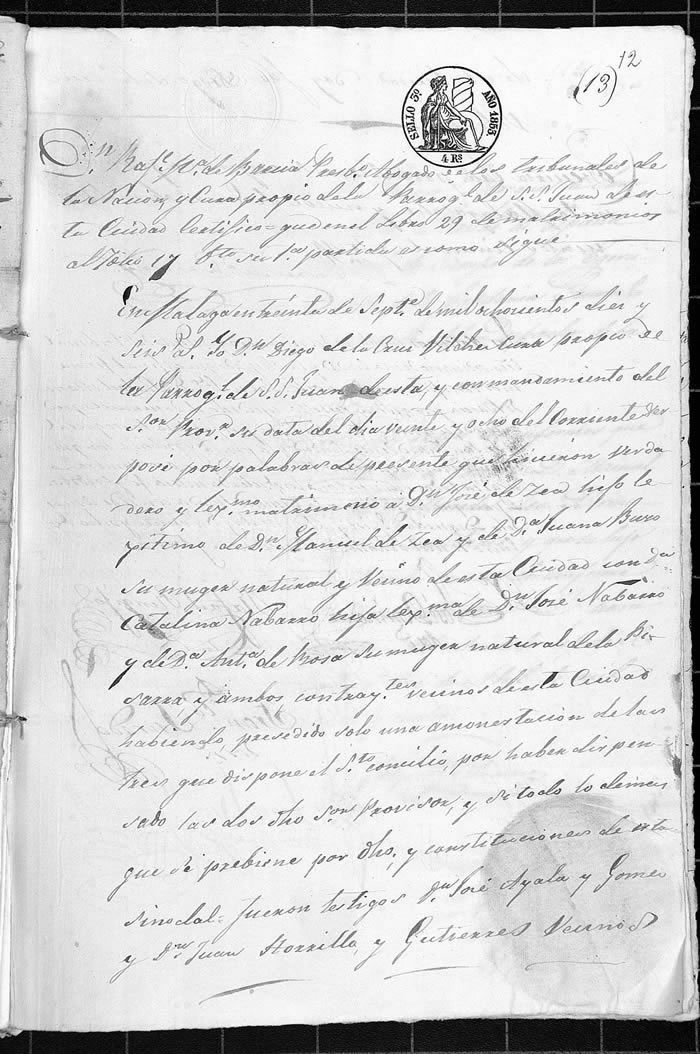 12
(13)
SELLO 3º AÑO 1863.
4 Rs
Dn. Raf.l Ma. de Presbo. Abogado de los tribunales de
la Nacion y Cura propio de la Parroql. de S.S. Juan de es
ta Ciudad Certifico = que en el Libro 29 de matrimonios
al folio 17 bto. su 1a. partida es como sigue
En Malaga en treinta de Septe. de mil ochocientos diez y
seis as. Yo Dn. Diego de la Cruz Vilches Cura propio de
la Parroql. de S.S. Juan de esta, y con mandamiento del
Sor. Provr. su data del dia veinte y ocho del Corriente des
posé por palabras de presente que hicieron verda
dero y lexmo. matrimonio a Dn. José de Zea hijo le
xitimo de Dn. Manuel de Zea y de Da. Juana
su muger natural y Vecino de esta Ciudad con Da.
Catalina Nabarro hija lexma. de Dn. José Nabarro
y de Da. Anta. de Rosa su muger natural de la Pi
sarra y ambos contraytes. vecinos de esta Ciudad
habiendo presedido solo una amonestacion de las
tres que dispone el Sto. concilio, por haber dispen
sado las dos dho Sor. Provisor, y si todo lo demas
que se prebiene por dho, y constituciones de esta
sinodal = fueron testigos Dn. José Ayala y Gomes
y Dn. Juan Gutierres Vecinos